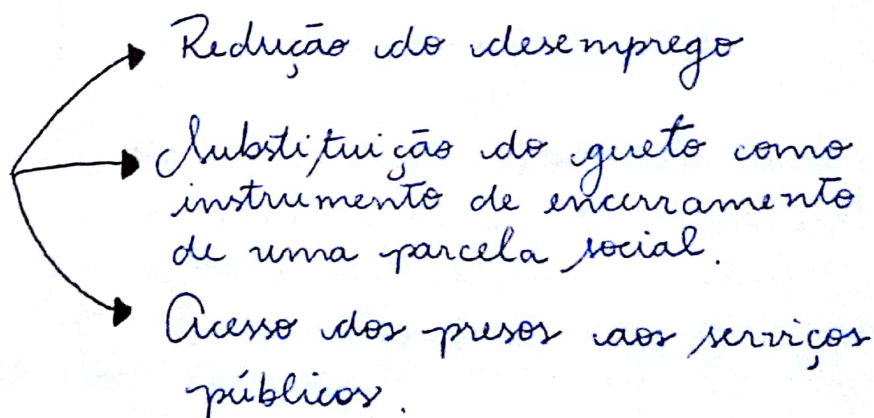 Redução do desemprego
Substituição do gueto como
instrumento de encerramento
de uma parcela social.
Acesso dos presos aos serviços
públicos.